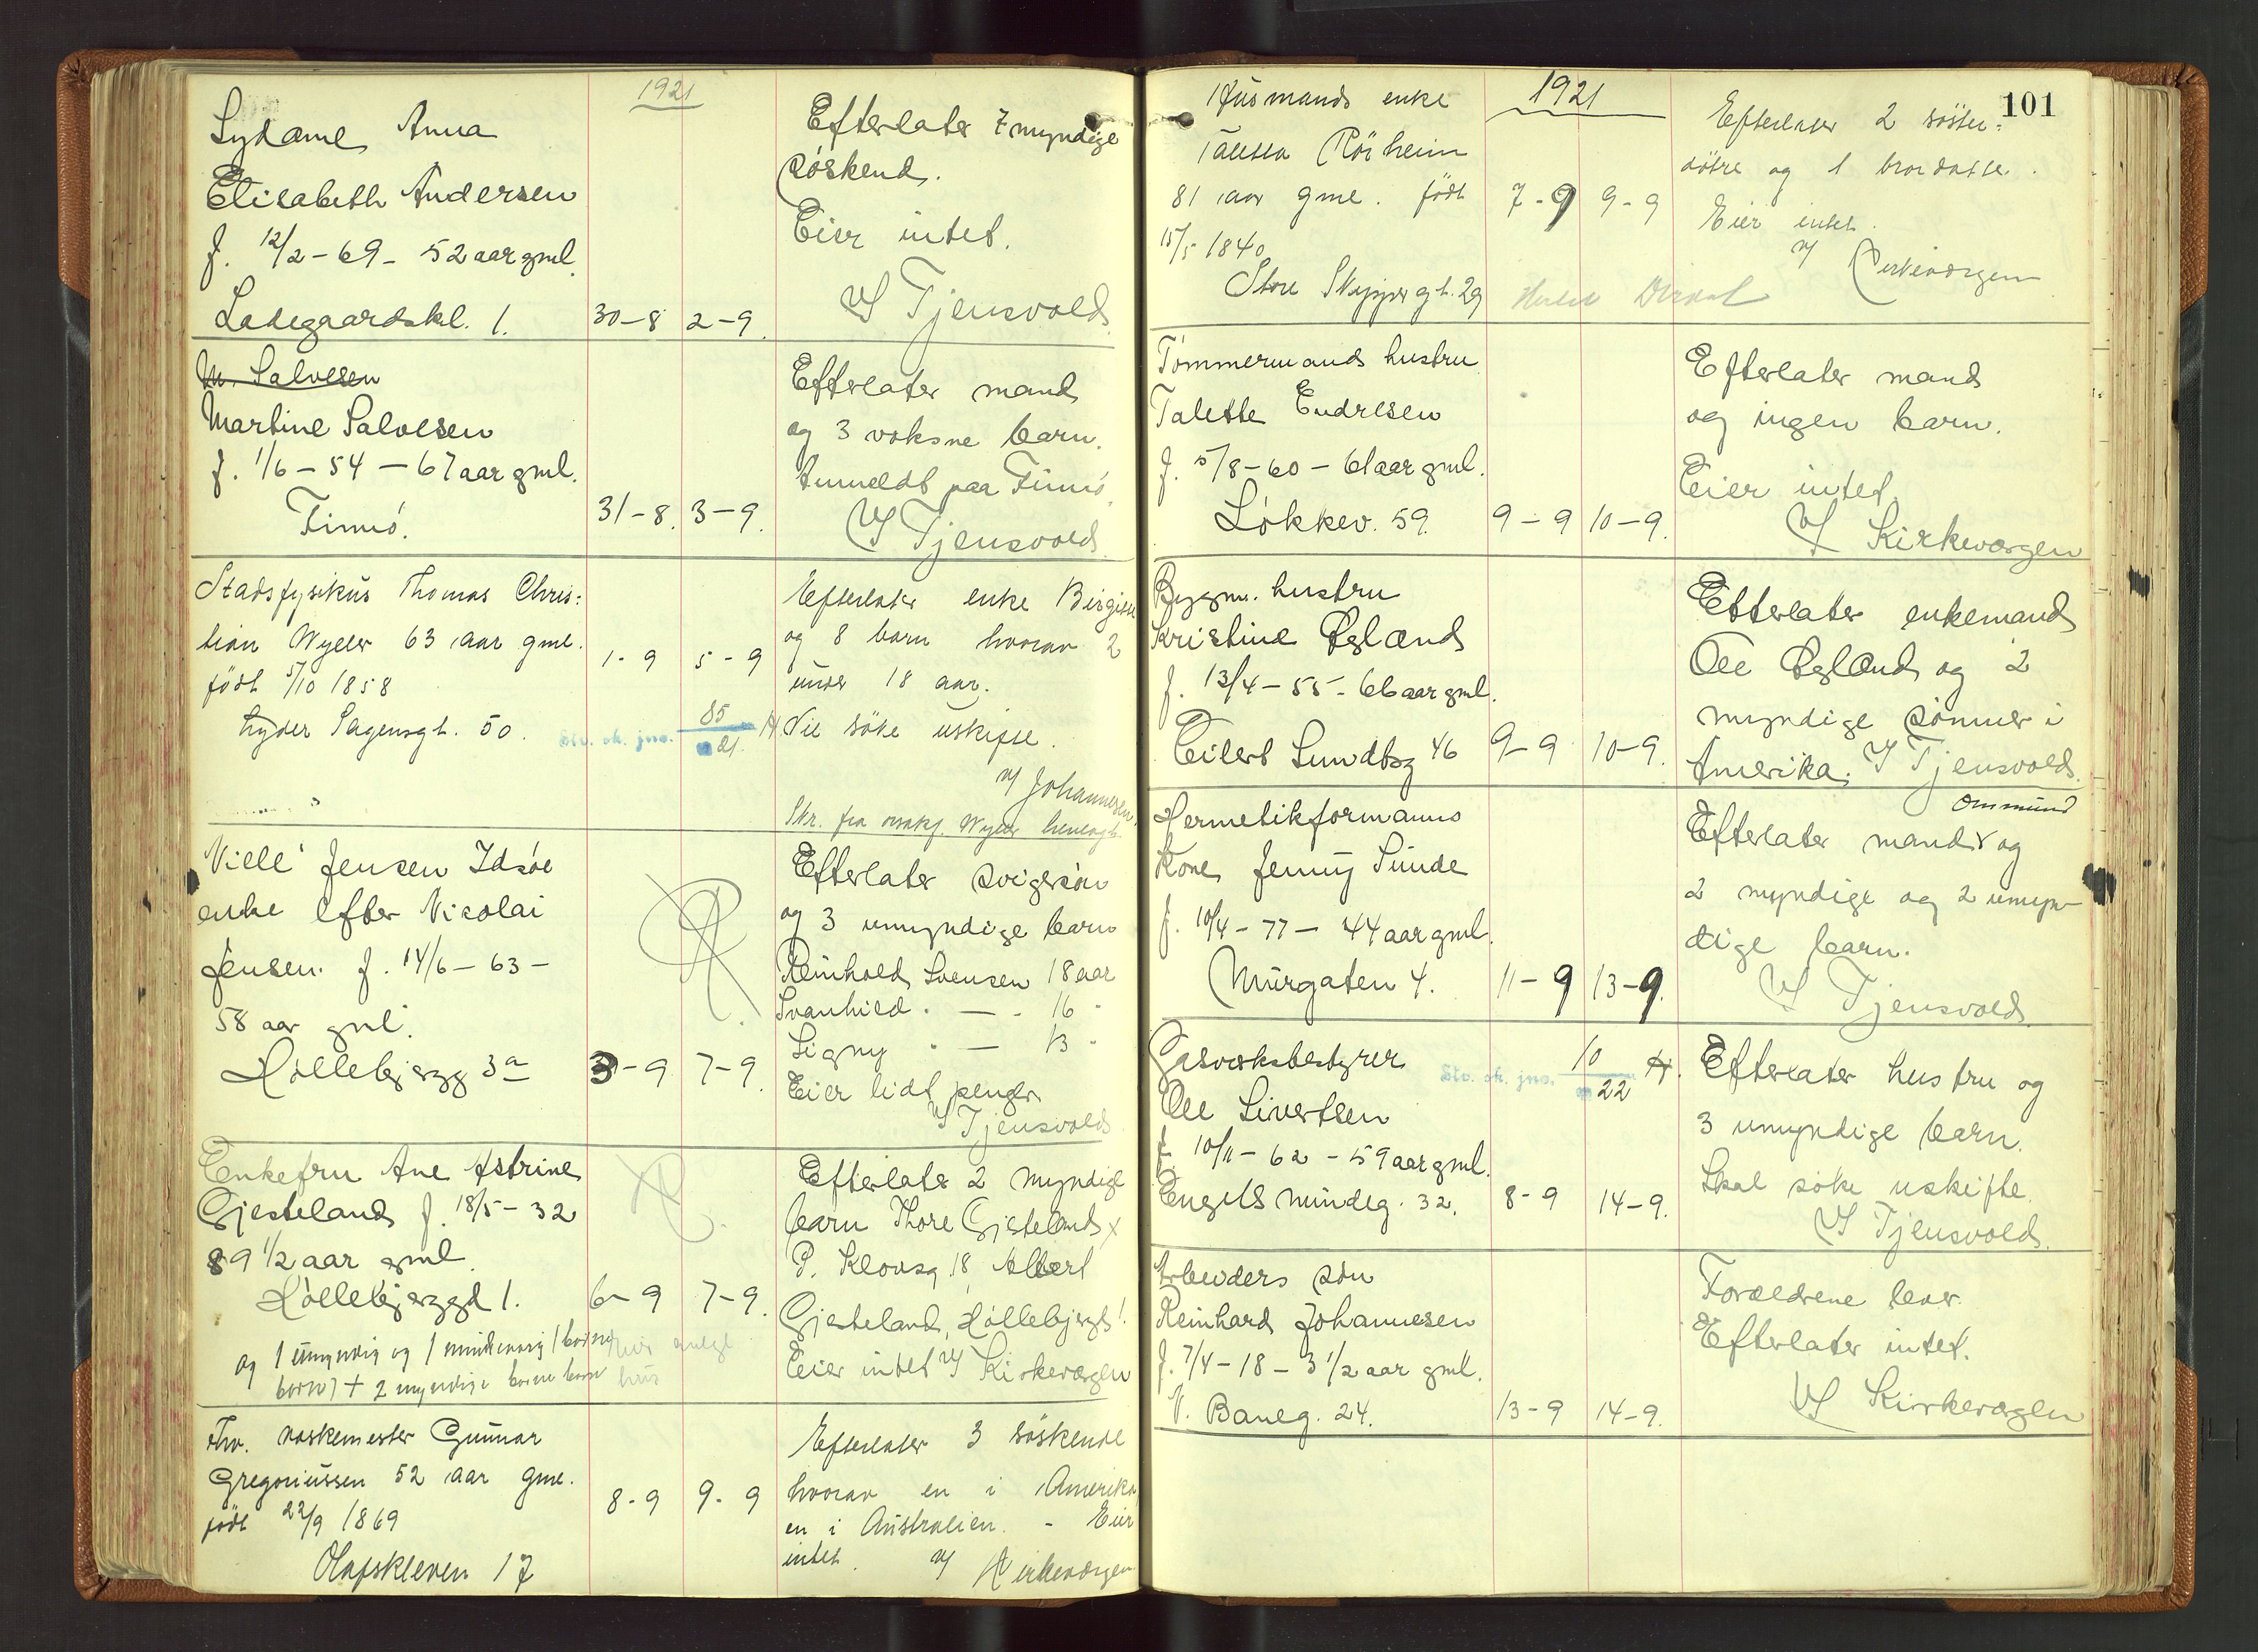 1921
Sydame, Anna
Elisabeth Andersen
f. 12/2 - 69 - 52 aar gml.
Ladegaardskl. 1.
30-8 2-9.
Efterlater 7 myndige
søskend.
Eier intet.
V/ Tjensvold.
M. Salvesen
Martine Salvesen
f. 1/6 - 54 - 67 aar gml.
Finnö.
31-8. 3-9.
Efterlater mand
og 3 voksne barn.
Anmeldt paa Finnö.
V/ Tjensvold
Stadsfysikus Thomas Chris=
tian Wyller 63 aar gml.
født 5/10 1858
Lyder Sagensgt. 50.
1-9 5-9
Stv. sk. jno. 85/21 H
Efterlater enke Birgitte
og 8 barn hvorav 2
under 18 aar.
Vil söke uskifte.
v/ Johannesen.
Skr. fra Wyller
Nille Jensen Idsöe
enke efter Nicolai
Jensen. f. 14/6 - 63 -
58 aar gml.
Hollebjergg 3a
3-9 7-9.
Efterlater svigersøn
og 3 umyndige barn
Reinhold Svensen 18 aar
Svanhild. — . 16 -
Signy . — 13 -
Eier lidt penger
V/ Tjensvold
Enkefru Ane Astrine
Gjesteland f. 18/5 - 32
89 1/2 aar gml.
Hollebjerggd 1.
6-9 7-9.
og 1 umyndig og 1
barn) + 2 myndige barne barn
hus
Efterlater 2 myndige
barn Thore Gjesteland x
P. Klowsg. 18, Albert
Gjesteland, Hollebjergd 1
Eier intet V/ Kirkevergen
Fhv. vaskemester Gunnar
Gregoriussen 52 aar gml.
født 22/9 1869
Olafskleven 17
8-9 9-9
Efterlater 3 söskende
hvorav en i Amerika,
en i Australien. - Eier
intet. v/ Kirkevergen
101
1921
Husmands enke
Taletta Rörheim
81 aar gml. født
15/5 1840
Store Skippergt. 29
7-9 9-9
Efterlater 2 söster=
døtre og 1 brordatter.
Eier intet.
v/ Kirkevergen
Tømmermands hustru
Talette Endresen
f. 5/8 - 60 - 61 aar gml.
Løkkev. 59.
9-9 10-9.
Efterlater mand
og ingen barn.
Eier intet.
V/ Kirkevergen
Bygm. hustru
Kristine Øglænd
f. 13/4 - 55 - 66 aar gml.
Eilert Sundtsg 46
9-9 10-9.
Efterlater enkemand
Ole Øglænd og 2
myndige sønner i
Amerika. V/ Tjensvold.
Hermetikformanns
kone, Jenny Sunde
f. 10/4 - 77 - 44 aar gml.
Murgaten 4.
11-9 13-9.
Ommund
Efterlater mand v og
2 myndige og 2 umyn-
dige barn.
V/ Tjensvold
Gasverksbestyrer
Ole Sivertsen
f. 10/11 - 62 - 59 aar gml.
Engelsmindeg. 32.
Stv. sk. jno. 10/22 H.
8-9 14-9.
Efterlater hustru og
3 umyndige barn.
Skal søke uskifte.
V/ Tjensvold.
Arbeiders søn
Reinhard Johannesen
f. 7/4 - 18 - 3 1/2 aar gml.
V. Baneg. 24.
13-9 14-9.
Forældrene lever.
Efterlater intet.
V/ Kirkevergen